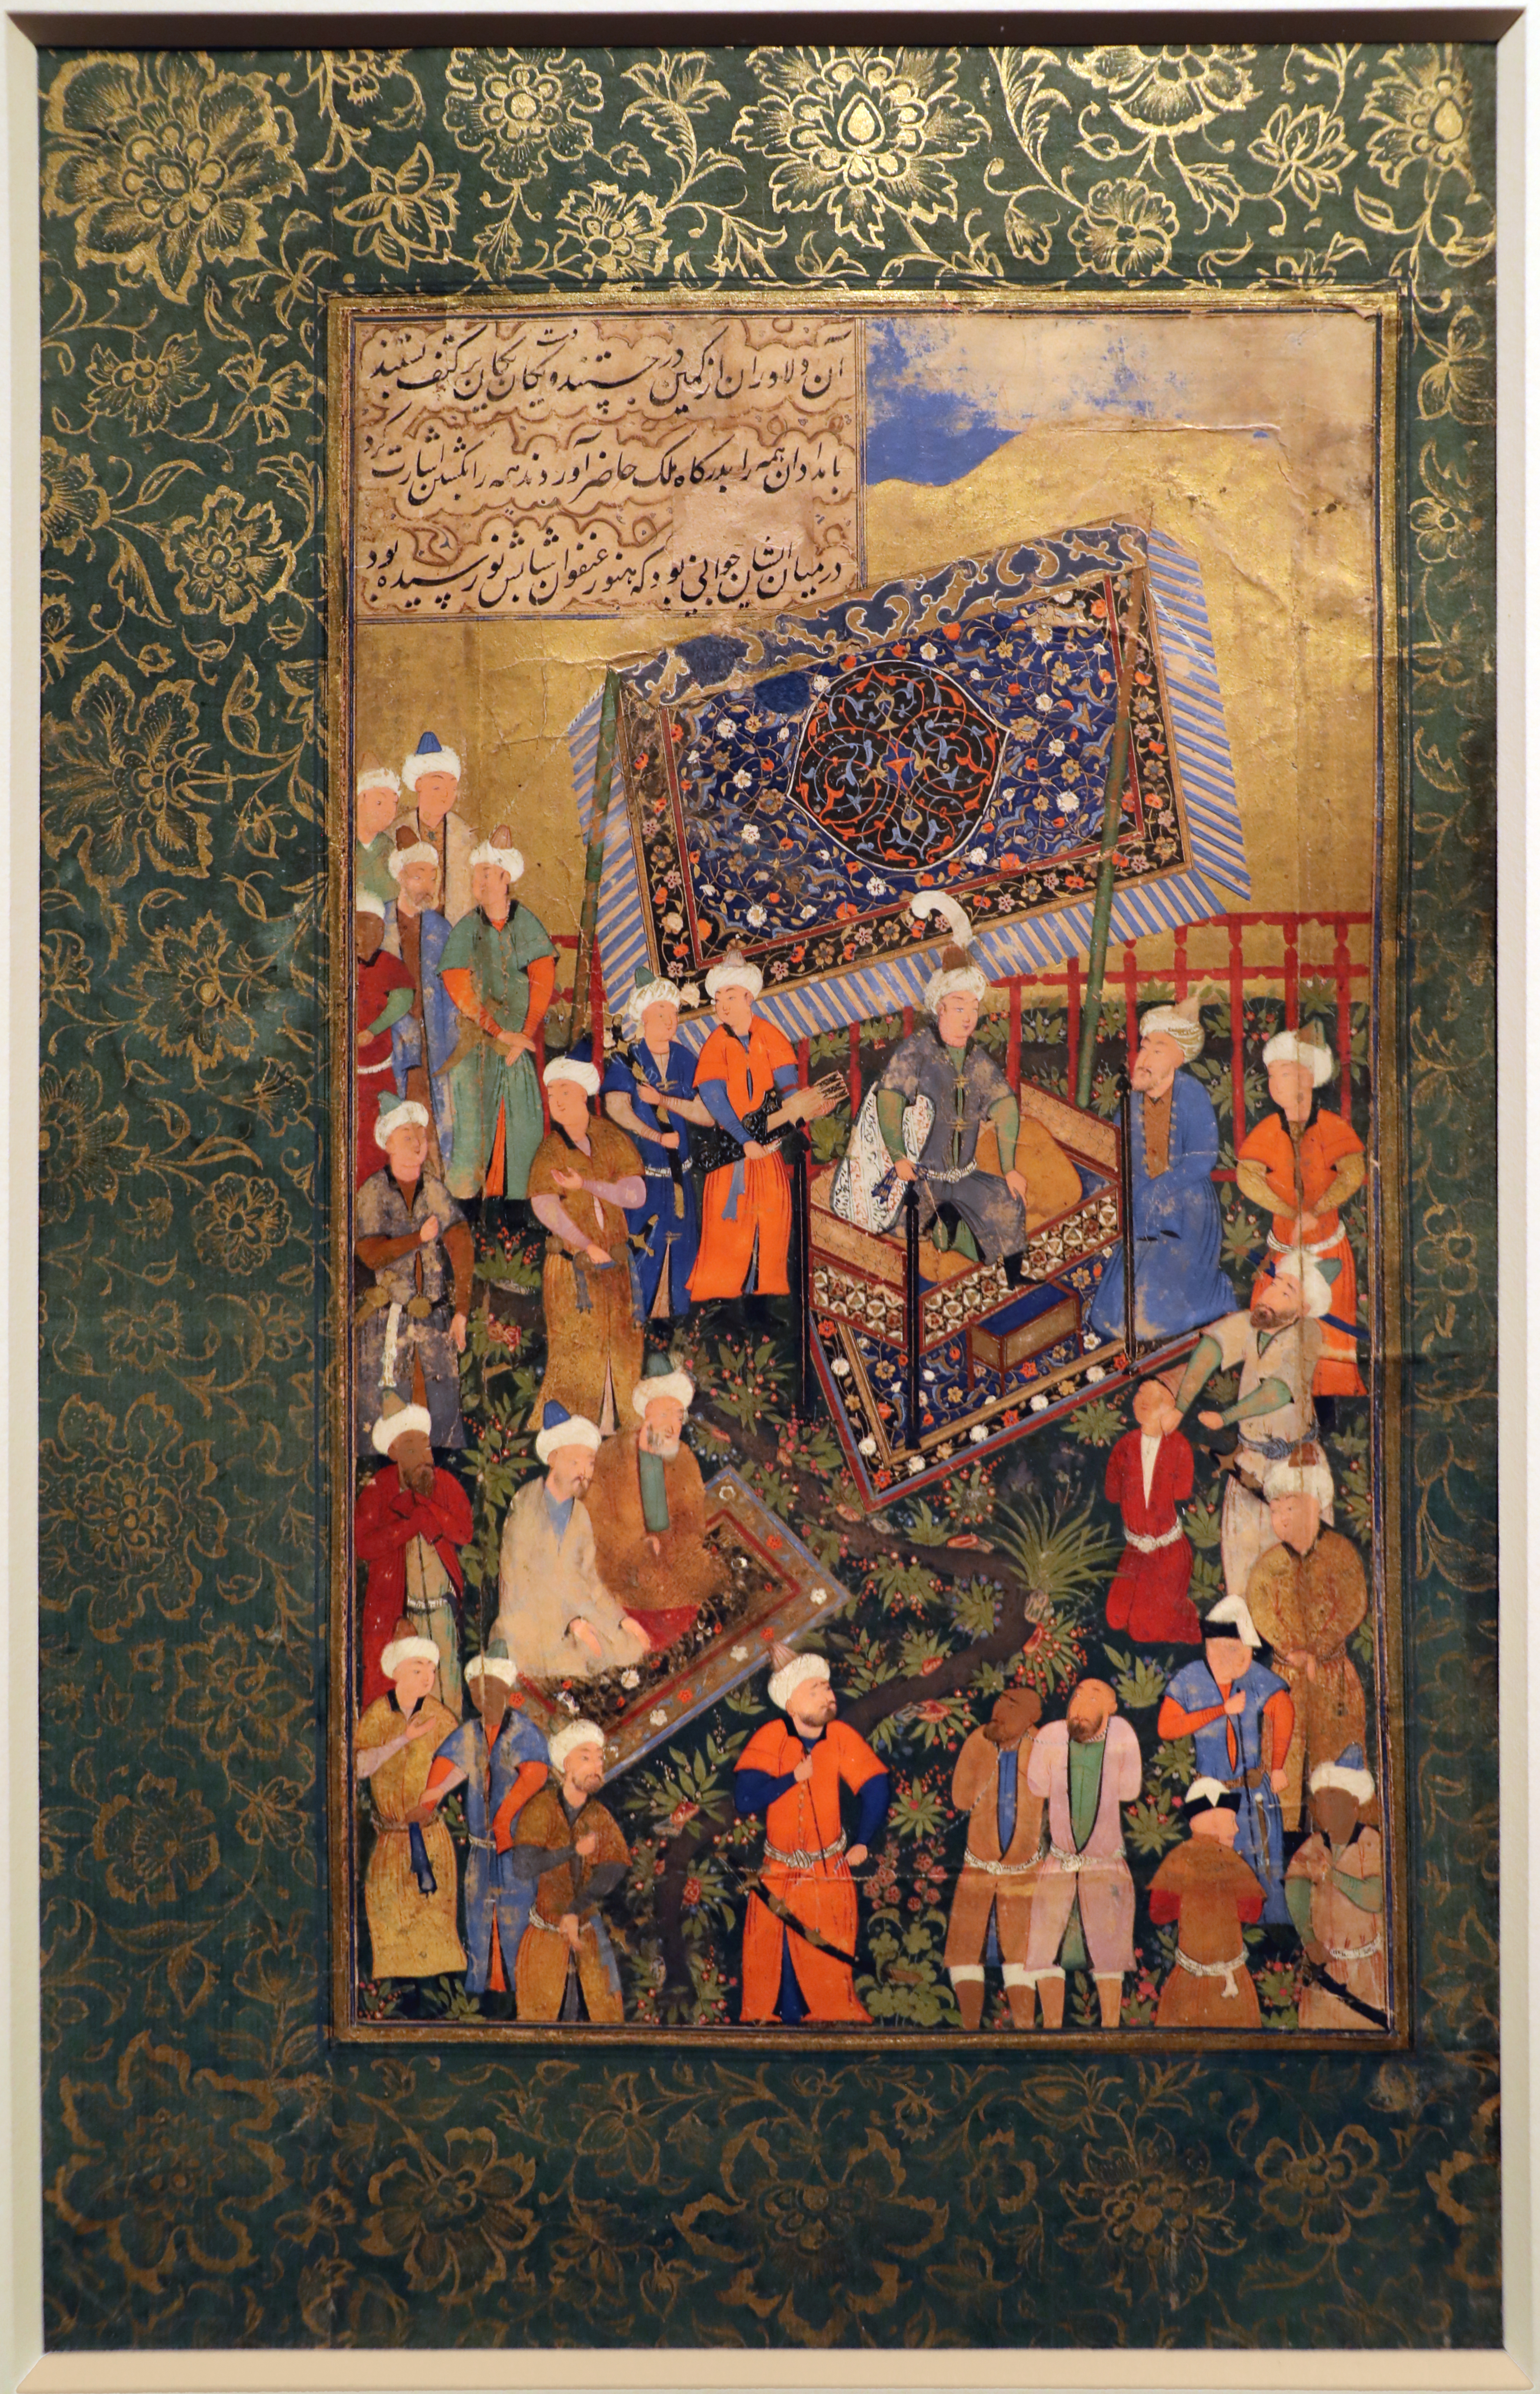 آن دلاوران از کمین در جستند و دست یکان یکان بر کتف بستند
بامدادان همه را بدرگاه ملک حاضر آوردند همه را بکشتن اشارت کرد
در میان ایشان جوانی بود که هنوز عنفوان شبابش نو رسیده بود